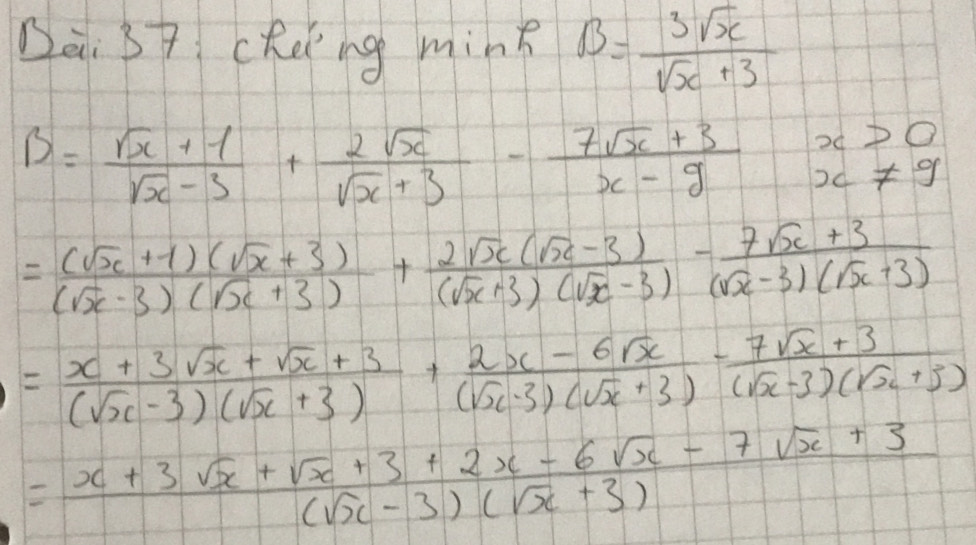 Bài 37: chứng minh B = 3√x / (√x + 3)
B = (√x + 1)/(√x - 3) + 2√x/(√x + 3) - (7√x + 3)/(x - 9) x > 0 x ≠ 9
= (√x + 1)(√x + 3)/((√x - 3)(√x + 3)) + 2√x(√x - 3)/((√x + 3)(√x - 3)) - (7√x + 3)/((√x - 3)(√x + 3))
= (x + 3√x + √x + 3)/((√x - 3)(√x + 3)) + (2x - 6√x)/((√x - 3)(√x + 3)) - (7√x + 3)/((√x - 3)(√x + 3))
= (x + 3√x + √x + 3 + 2x - 6√x - 7√x + 3)/((√x - 3)(√x + 3))